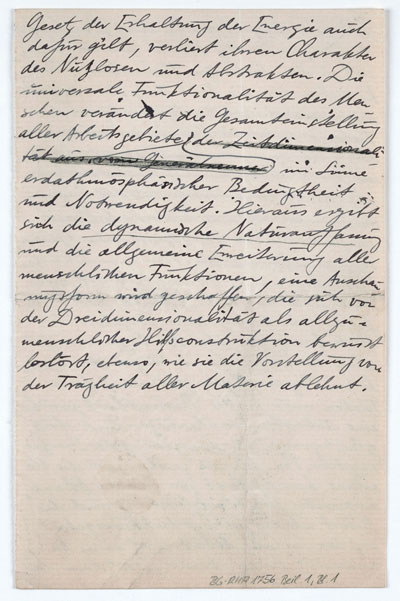 Gesetz der Erhaltung der Energie auch
dafür gilt, verliert ihren Charakter
des Nutzlosen und Abstrakten. Die
universale Funktionalität des Men-
schen verändert die Gesamteinstellung
aller Arbeitsgebiete der Zeitdimensionali-
tät aus, im Sinne
erdathmosphärischer Bedingtheit
und Notwendigkeit. Hieraus ergibt
sich die dynamische Naturauffassung
und die allgemeine Erweiterung aller
menschlichen Funktionen, eine Anschau-
ungsform wird geschaffen, die sich von
der Dreidimensionalität als allzu=
menschlicher Hilfsconstruktion bewusst
loslöst, ebenso, wie sie die Vorstellung von
der Trägheit aller Materie ablehnt.
BG-RHA 1756 Beil. 1, Bl. 1